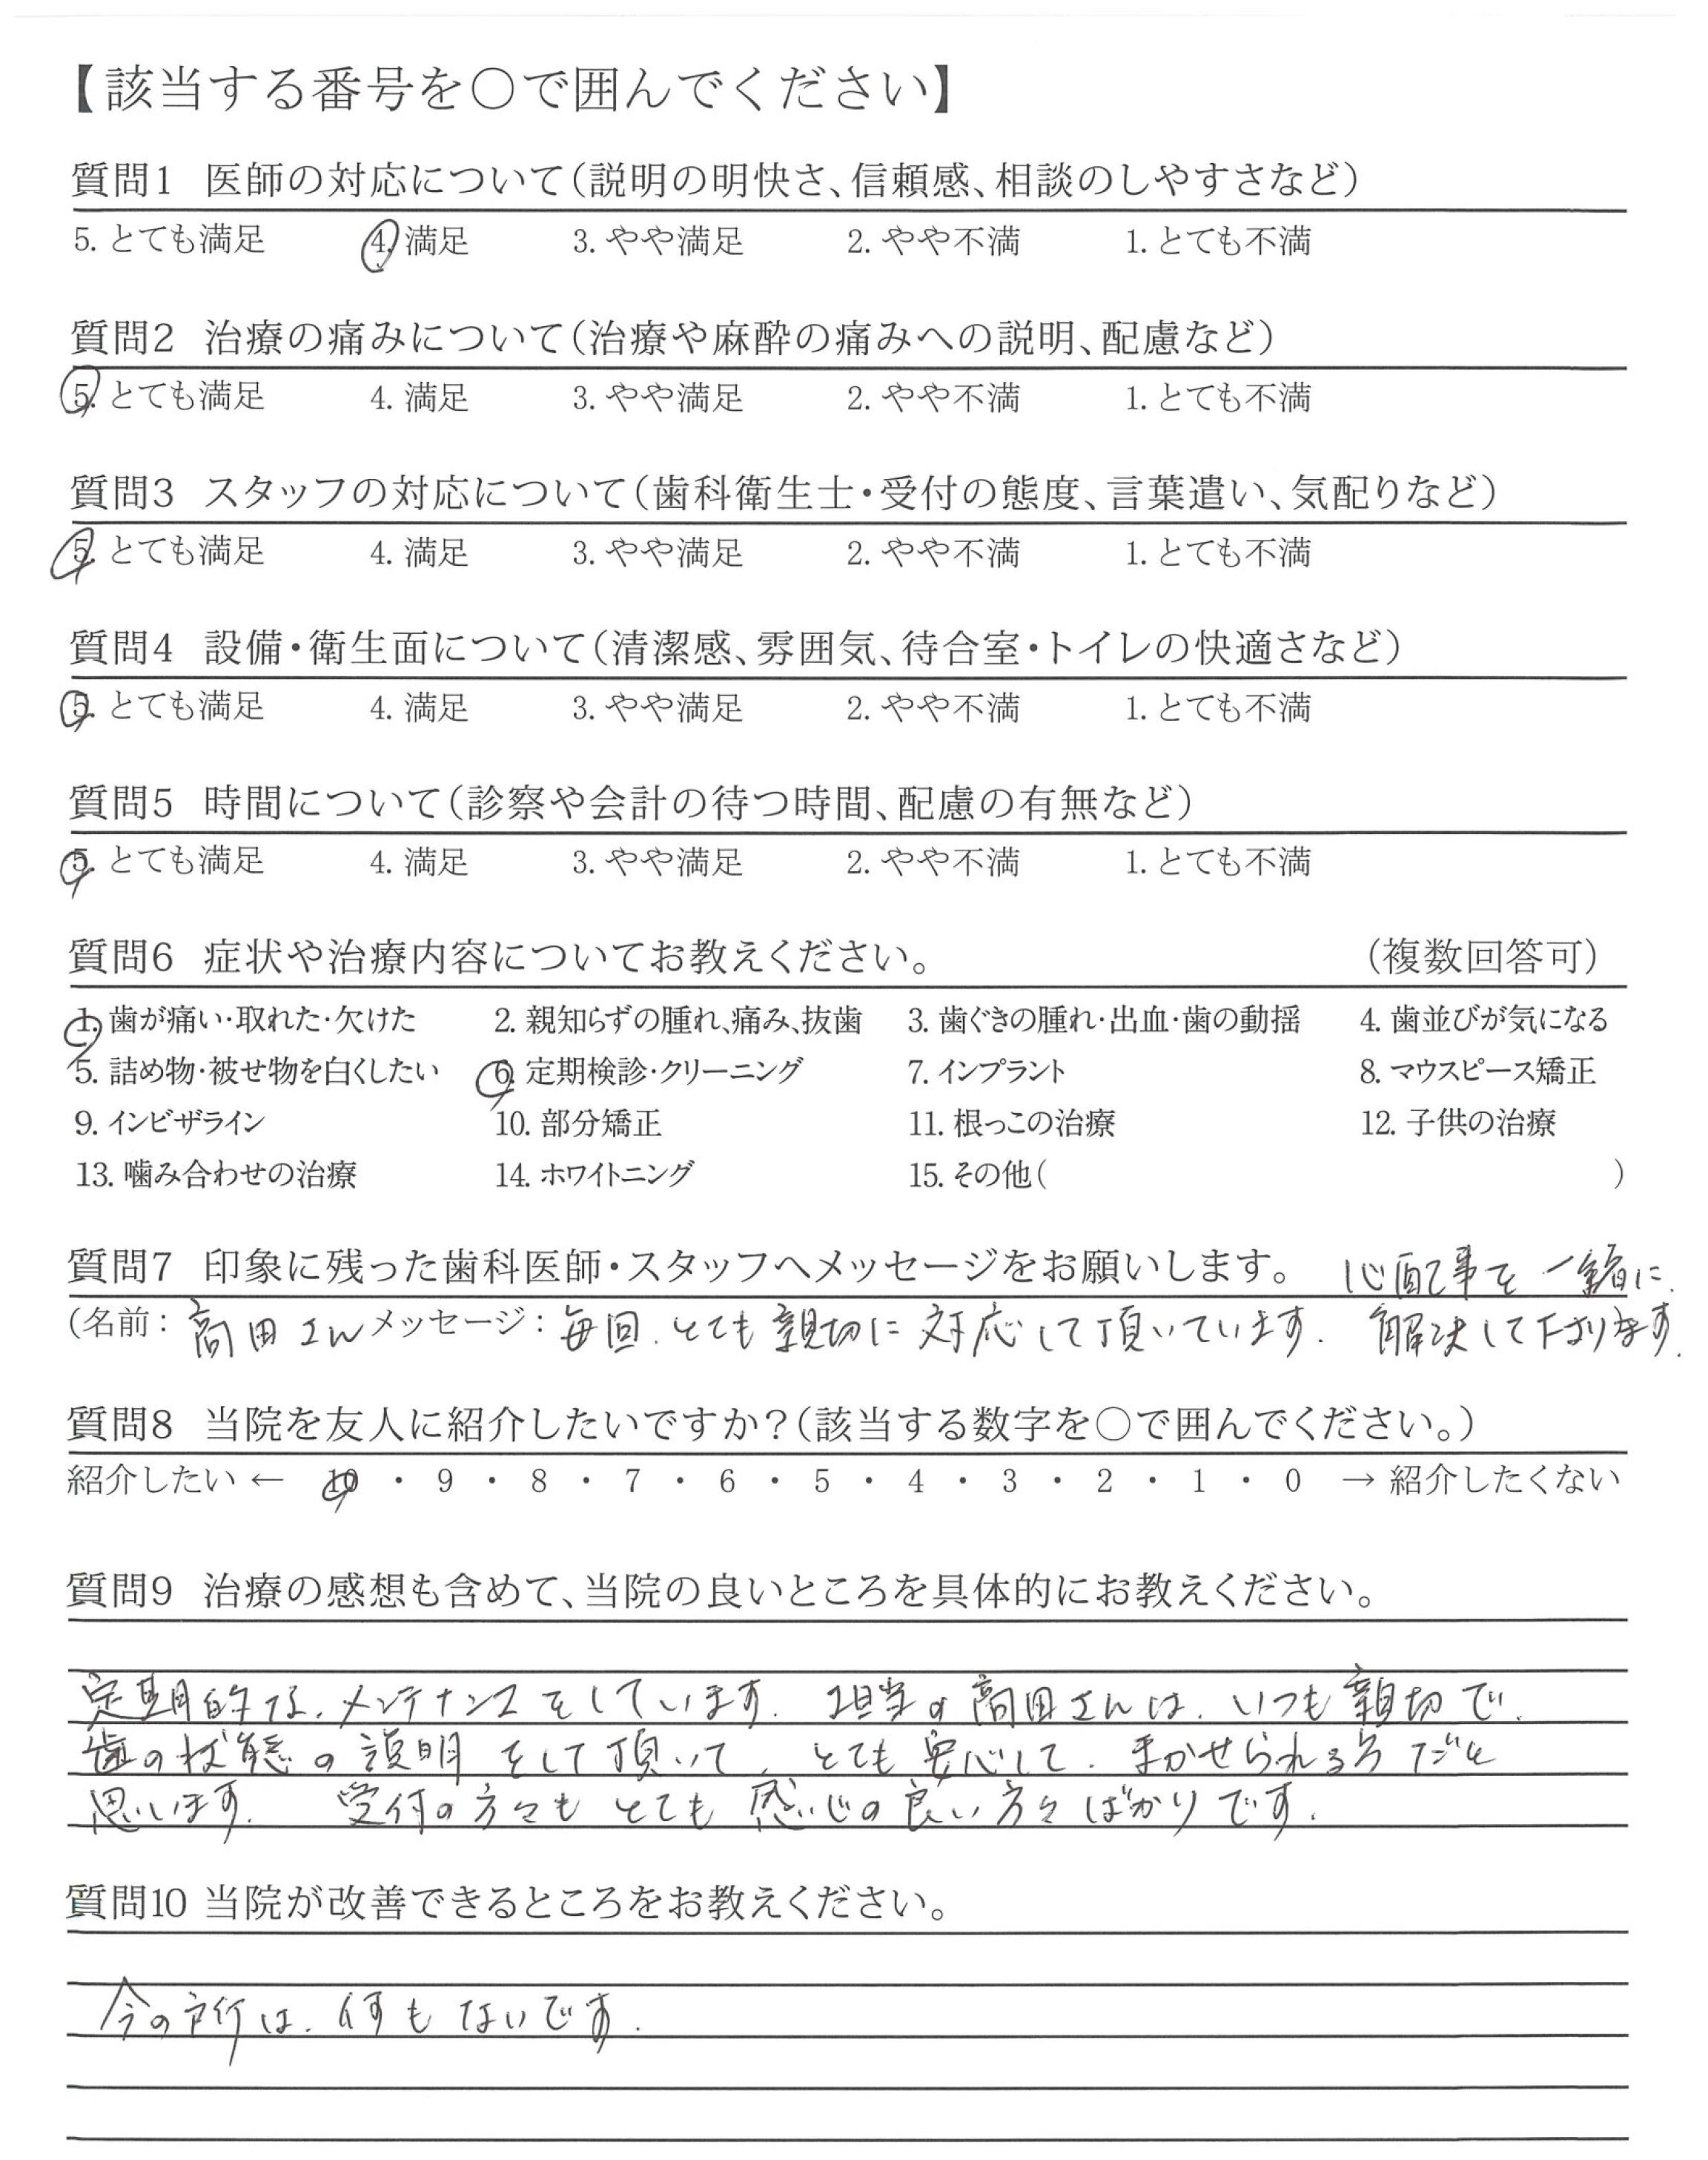 【該当する番号を○で囲んでください】
質問1 医師の対応について(説明の明快さ、信頼感、相談のしやすさなど)
5. とても満足 4. 満足 3. やや満足 2. やや不満 1. とても不満
質問2 治療の痛みについて(治療や麻酔の痛みへの説明、配慮など)
5. とても満足 4. 満足 3. やや満足 2. やや不満 1. とても不満
質問3 スタッフの対応について(歯科衛生士・受付の態度、言葉遣い、気配りなど)
5. とても満足 4. 満足 3. やや満足 2. やや不満 1. とても不満
質問4 設備・衛生面について(清潔感、雰囲気、待合室・トイレの快適さなど)
5. とても満足 4. 満足 3. やや満足 2. やや不満 1. とても不満
質問5 時間について(診察や会計の待つ時間、配慮の有無など)
5. とても満足 4. 満足 3. やや満足 2. やや不満 1. とても不満
質問6 症状や治療内容についてお教えください。 (複数回答可)
1. 歯が痛い・取れた・欠けた 2. 親知らずの腫れ、痛み、抜歯 3. 歯ぐきの腫れ・出血・歯の動揺 4. 歯並びが気になる
5. 詰め物・被せ物を白くしたい 6. 定期検診・クリーニング 7. インプラント 8. マウスピース矯正
9. インビザライン 10. 部分矯正 11. 根っこの治療 12. 子供の治療
13. 噛み合わせの治療 14. ホワイトニング 15. その他( )
質問7 印象に残った歯科医師・スタッフへメッセージをお願いします。 心配事を一緒に
(名前: 高田さん メッセージ: 毎回、とても親切に対応して頂いています。 解決して下さります。
質問8 当院を友人に紹介したいですか?(該当する数字を○で囲んでください。)
紹介したい ← 10 ・ 9 ・ 8 ・ 7 ・ 6 ・ 5 ・ 4 ・ 3 ・ 2 ・ 1 ・ 0 → 紹介したくない
質問9 治療の感想も含めて、当院の良いところを具体的にお教えください。
定期的な、メンテナンスをしています。 担当の高田さんは、いつも親切で、
歯の状態の説明をして頂いて、とても安心して、まかせられる方だと
思います。 受付の方々もとても感じの良い方々ばかりです。
質問10 当院が改善できるところをお教えください。
今の所は、何もないです。